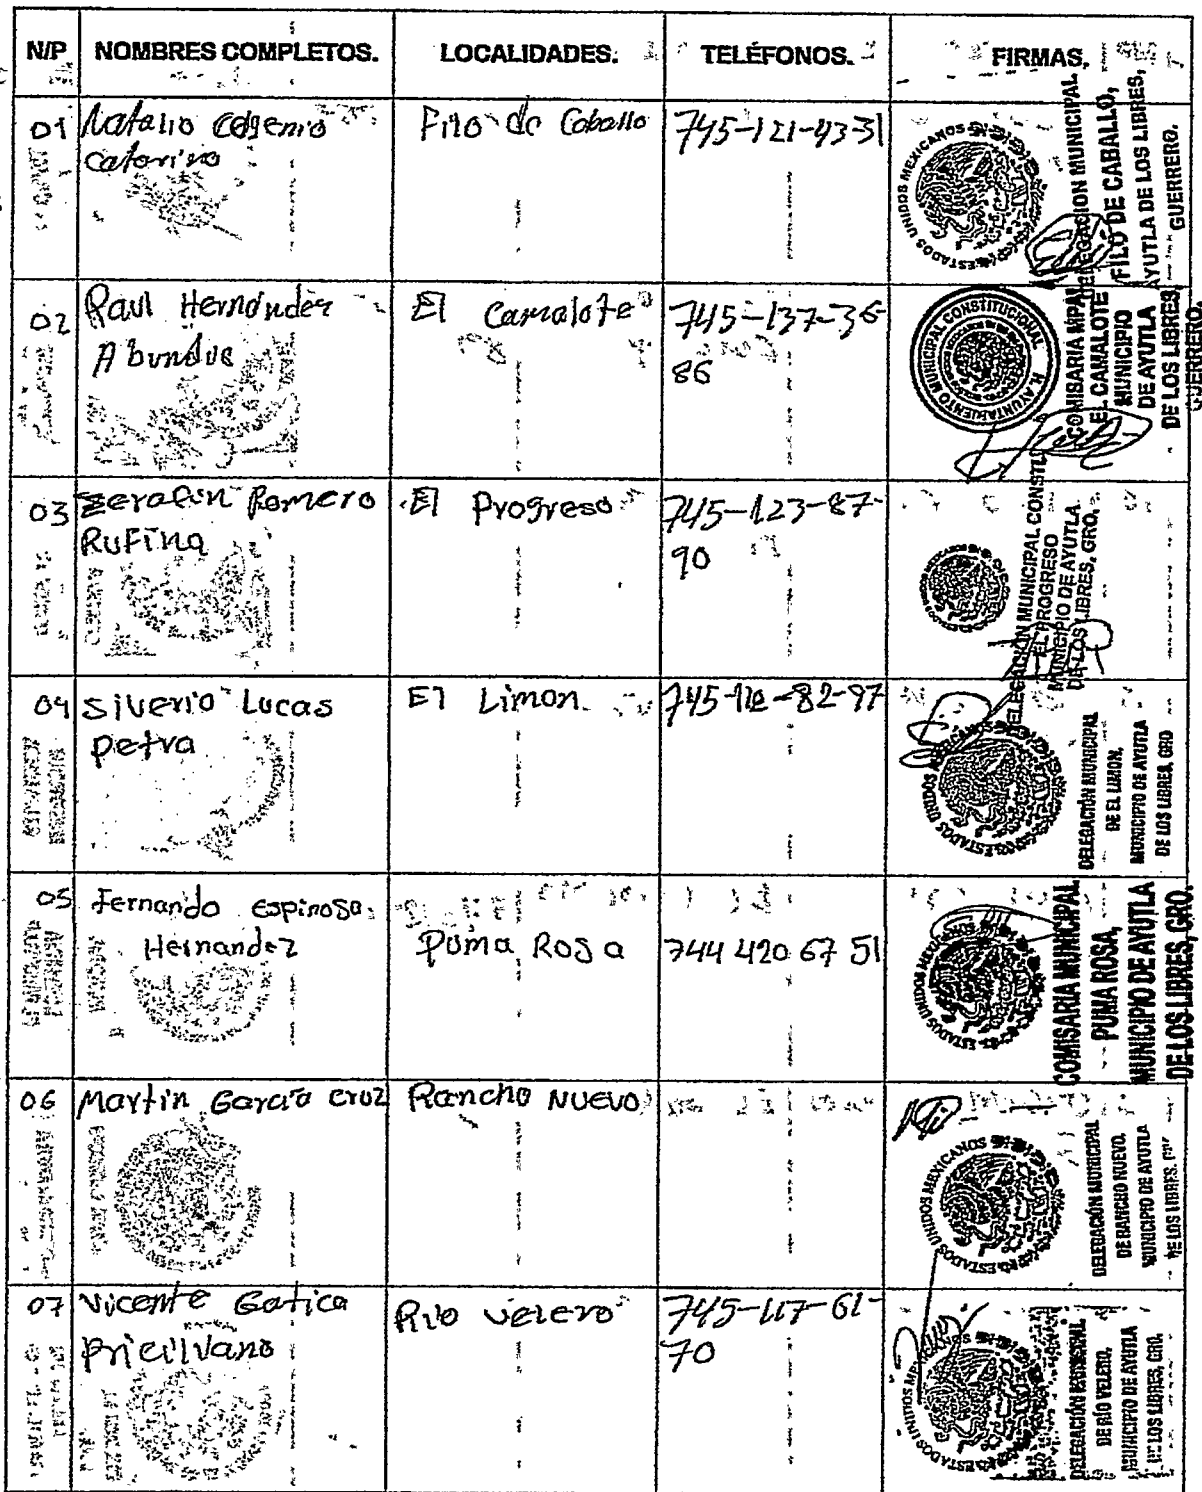 N/P NOMBRES COMPLETOS. LOCALIDADES: TELÉFONOS. FIRMAS.
01 Natalio Eugenio Filo de Caballo 745-121-43-31
Catarino
ESTADOS UNIDOS MEXICANOS
DELEGACION MUNICIPAL
FILO DE CABALLO,
AYUTLA DE LOS LIBRES,
GUERRERO.
02 Raul Hernández El Camalote 745-137-36-
Abundio 86
H. AYUNTAMIENTO MUNICIPAL CONSTITUCIONAL
COMISARIA MPAL
EL CAMALOTE
MUNICIPIO
DE AYUTLA
DE LOS LIBRES,
GUERRERO.
03 Zerafin Romero El Progreso 745-123-87-
Rufina 90
DELEGACIÓN MUNICIPAL CONSTITU
EL PROGRESO
MUNICIPIO DE AYUTLA
DE LOS LIBRES, GRO.
04 Silverio Lucas El Limon 745-112-82-97
Petra
ESTADOS UNIDOS MEXICANOS
DELEGACIÓN MUNICIPAL
DE EL LIMON,
MUNICIPIO DE AYUTLA
DE LOS LIBRES, GRO
05 Fernando Espinosa
Hernandez Puma Rosa 744 420 67 51
ESTADOS UNIDOS MEXICANOS
COMISARIA MUNICIPAL
PUMA ROSA,
MUNICIPIO DE AYUTLA
DE LOS LIBRES, GRO.
06 Martin Garcia Cruz Rancho Nuevo
ESTADOS UNIDOS MEXICANOS
DELEGACIÓN MUNICIPAL
DE RANCHO NUEVO,
MUNICIPIO DE AYUTLA
DE LOS LIBRES,
07 Vicente Gatica Rio velero 745-117-61-
Pricilvano 70
ESTADOS UNIDOS MEXICANOS
DELEGACIÓN MUNICIPAL
DE RÍO VELERO,
MUNICIPIO DE AYUTLA
DE LOS LIBRES, GRO.